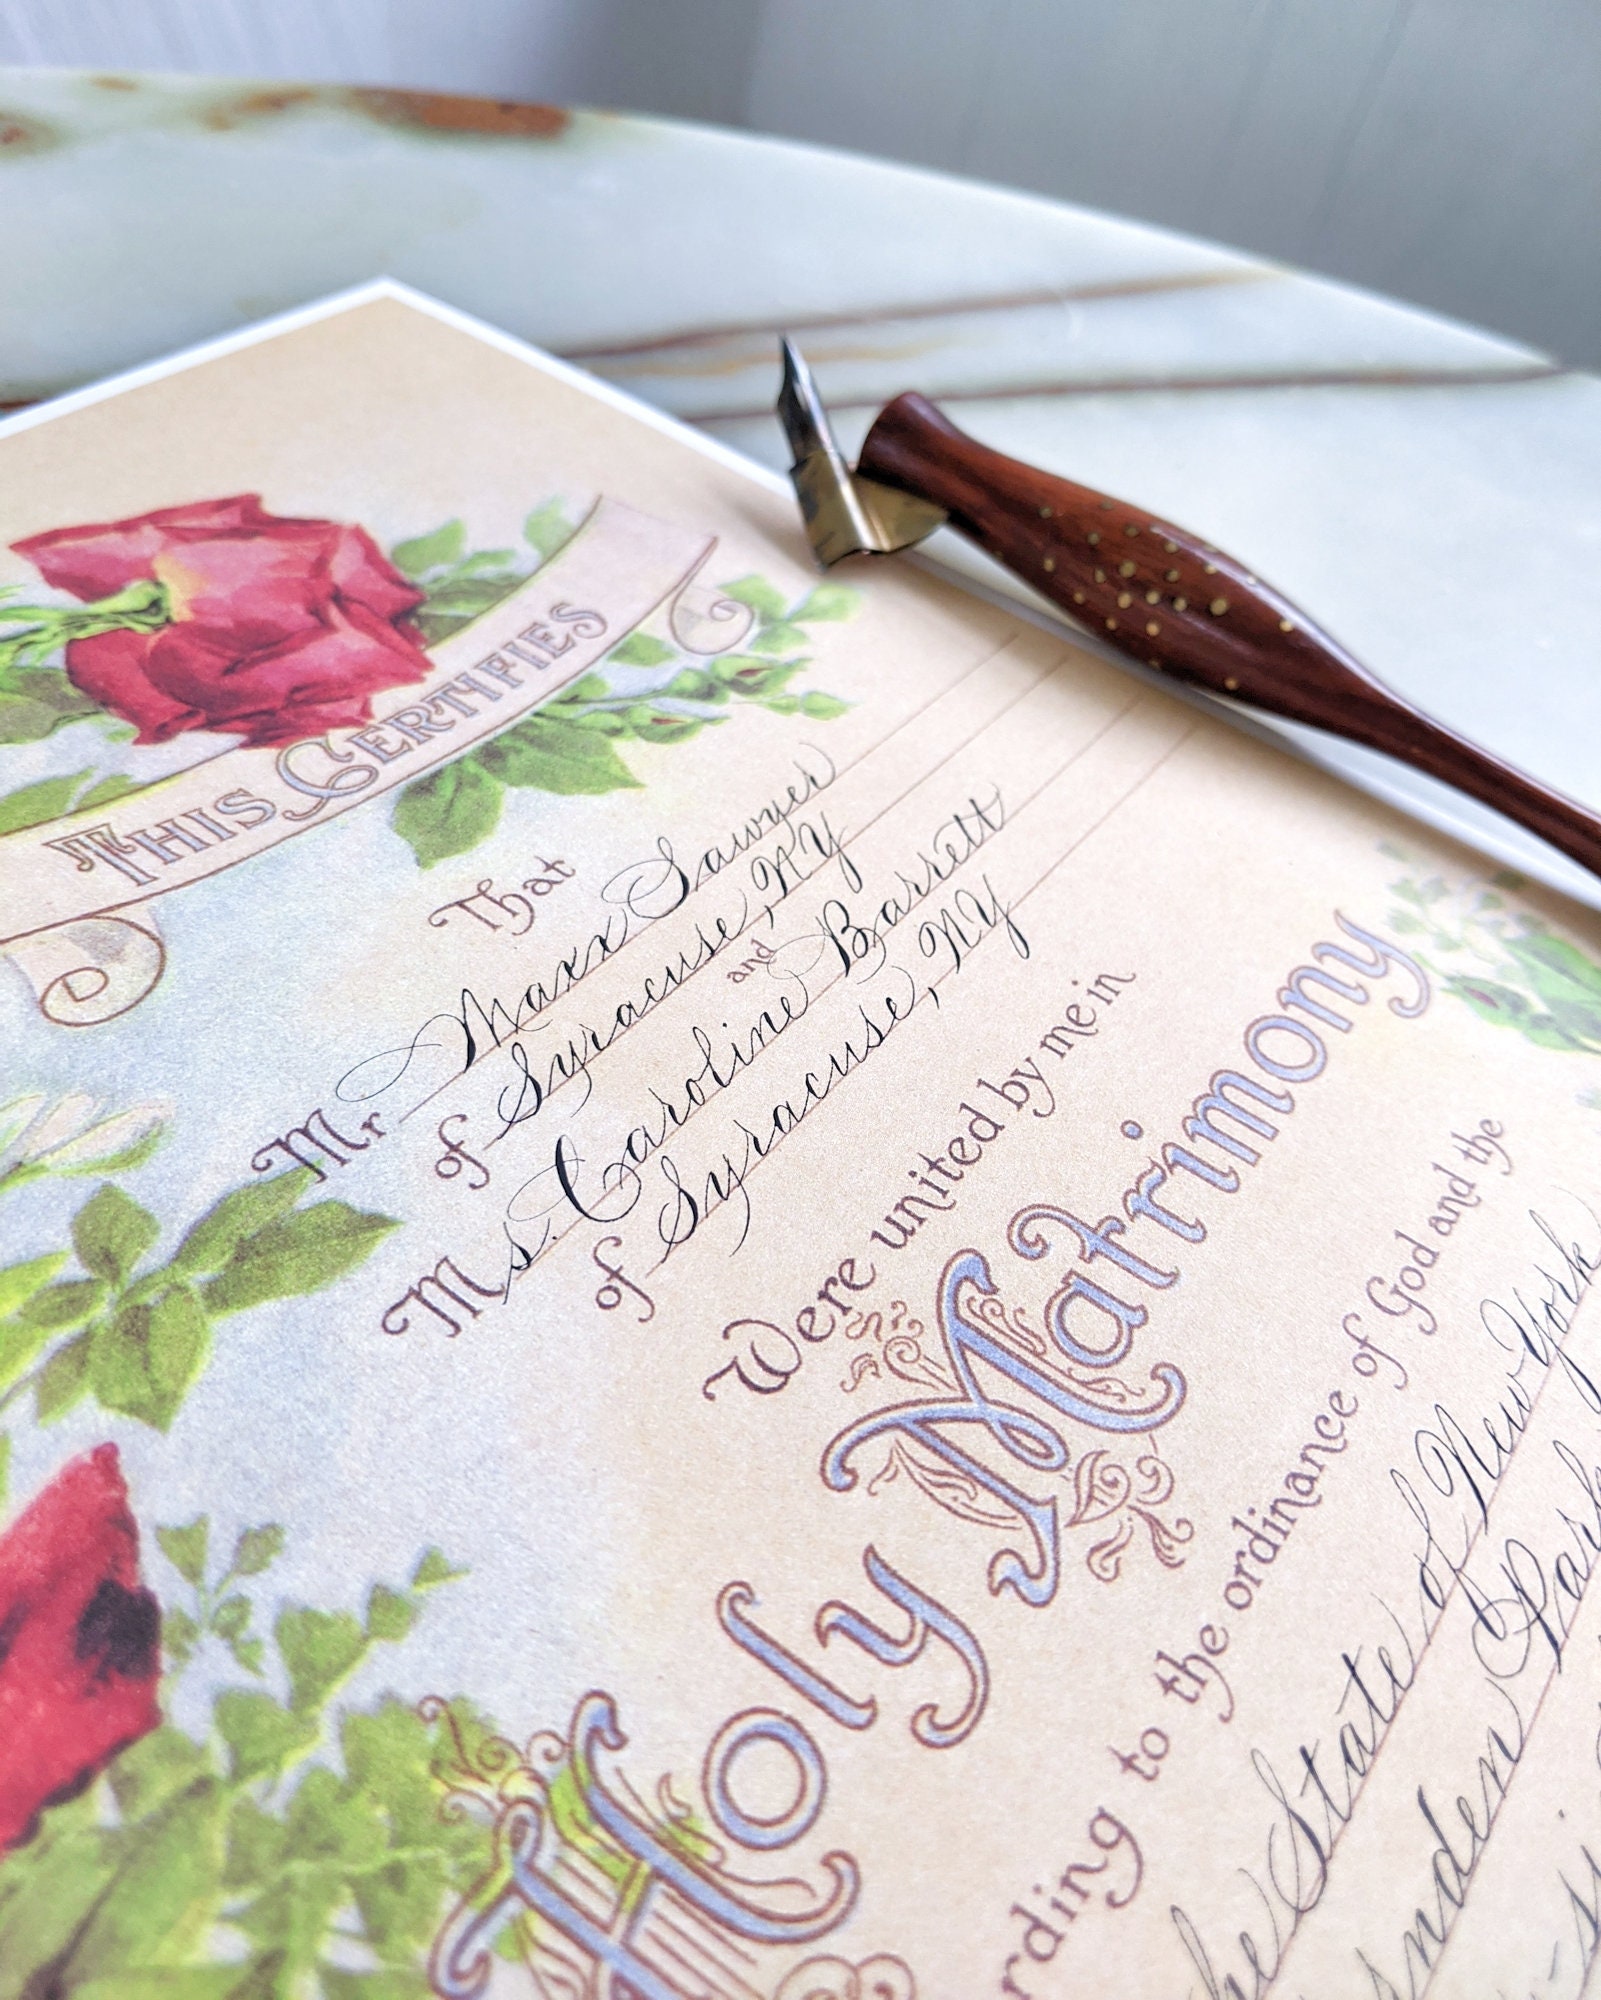 THIS CERTIFIES
That
Mr Maxx Sawyer
of Syracuse, NY
and
Ms. Caroline Barrett
of Syracuse, NY
Were united by me in
Holy Matrimony
to the ordinance of God and the
State of New York